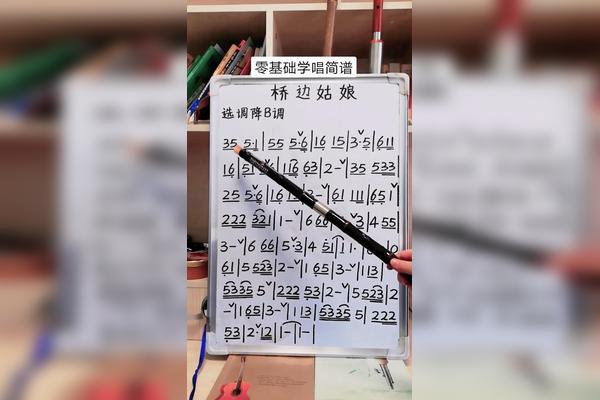 零基础学唱简谱
桥边姑娘
选调降B调
35 51|55 5·6|16 15|3·5|611
16|51 |116 63|2-|35 533
25 5·6|16 1 |2-|61 111|65 1|
222 321|1-|6 66 3|4 55|
3-|6 66|5·3|4 51|1 1· 0
61|5 523|2-|1 65|3-|113|
5335 5|222 53|2-|5 523|2
-|1 65|3-|1 13|5335 5|222
53|2·12|1-|1-|